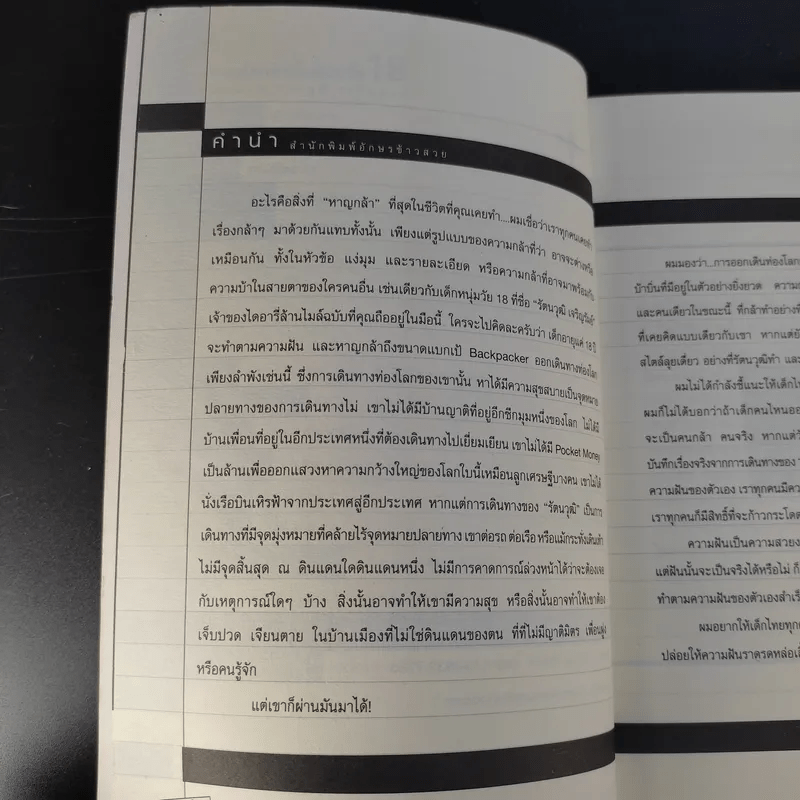 คำนำ สำนักพิมพ์อักษรข้าวสวย
อะไรคือสิ่งที่ “หาญกล้า” ที่สุดในชีวิตที่คุณเคยทำ....ผมเชื่อว่าเราทุกคนเคยทำ
เรื่องกล้าๆ มาด้วยกันแทบทั้งนั้น เพียงแต่รูปแบบของความกล้าที่ว่า อาจจะต่างหรือ
เหมือนกัน ทั้งในหัวข้อ แง่มุม และรายละเอียด หรือความกล้าที่อาจมาพร้อมกับ
ความบ้าในสายตาของใครคนอื่น เช่นเดียวกับเด็กหนุ่มวัย 18 ที่ชื่อ “รัตนวุฒิ เจริญรัมย์”
เจ้าของไดอารี่ล้านไมล์ฉบับที่คุณถืออยู่ในมือนี้ ใครจะไปคิดละครับว่า เด็กอายุแค่ 18 ปี
จะทำตามความฝัน และหาญกล้าถึงขนาดแบกเป้ Backpacker ออกเดินทางท่องโลก
เพียงลำพังเช่นนี้ ซึ่งการเดินทางท่องโลกของเขานั้น หาได้มีความสุขสบายเป็นจุดหมาย
ปลายทางของการเดินทางไม่ เขาไม่ได้มีบ้านญาติที่อยู่อีกซีกมุมหนึ่งของโลก ไม่ได้มี
บ้านเพื่อนที่อยู่ในอีกประเทศหนึ่งที่ต้องเดินทางไปเยี่ยมเยียน เขาไม่ได้มี Pocket Money
เป็นล้านเพื่อออกแสวงหาความกว้างใหญ่ของโลกใบนี้เหมือนลูกเศรษฐีบางคน เขาไม่ได้
นั่งเรือบินเหิรฟ้าจากประเทศสู่อีกประเทศ หากแต่การเดินทางของ “รัตนวุฒิ” เป็นการ
เดินทางที่มีจุดมุ่งหมายที่คล้ายไร้จุดหมายปลายทาง เขาต่อรถ ต่อเรือ หรือแม้กระทั่งเดินเท้า
ไม่มีจุดสิ้นสุด ณ ดินแดนใดดินแดนหนึ่ง ไม่มีการคาดการณ์ล่วงหน้าได้ว่าจะต้องเจอ
กับเหตุการณ์ใดๆ บ้าง สิ่งนั้นอาจทำให้เขามีความสุข หรือสิ่งนั้นอาจทำให้เขาต้อง
เจ็บปวด เจียนตาย ในบ้านเมืองที่ไม่ใช่ดินแดนของตน ที่ที่ไม่มีญาติมิตร เพื่อนฝูง
หรือคนรู้จัก
แต่เขาก็ผ่านมันมาได้!
ผมมองว่า...การออกเดินท่องโลก
บ้าบิ่นที่มีอยู่ในตัวอย่างยิ่งยวด
และคนเดียวในขณะนี้ ที่กล้าทำอย่าง
ที่เคยคิดแบบเดียวกับเขา หากแต่
สไตล์ลุยเดี่ยว อย่างที่รัตนวุฒิทำ และ
ผมไม่ได้กำลังชี้แนะให้เด็ก
ผมก็ไม่ได้บอกว่าถ้าเด็กคนไหน
จะเป็นคนกล้า คนจริง หากแต่
บันทึกเรื่องจริงจากการเดินทางของ
ความฝันของตัวเอง เราทุกคนมี
เราทุกคนก็มีสิทธิ์ที่จะก้าวกระโดด
ความฝันเป็นความสวยง
แต่ฝันนั้นจะเป็นจริงได้หรือไม่ ก็
ทำตามความฝันของตัวเองสำเร็
ผมอยากให้เด็กไทยทุก
ปล่อยให้ความฝันราดรดหล่อเลี้